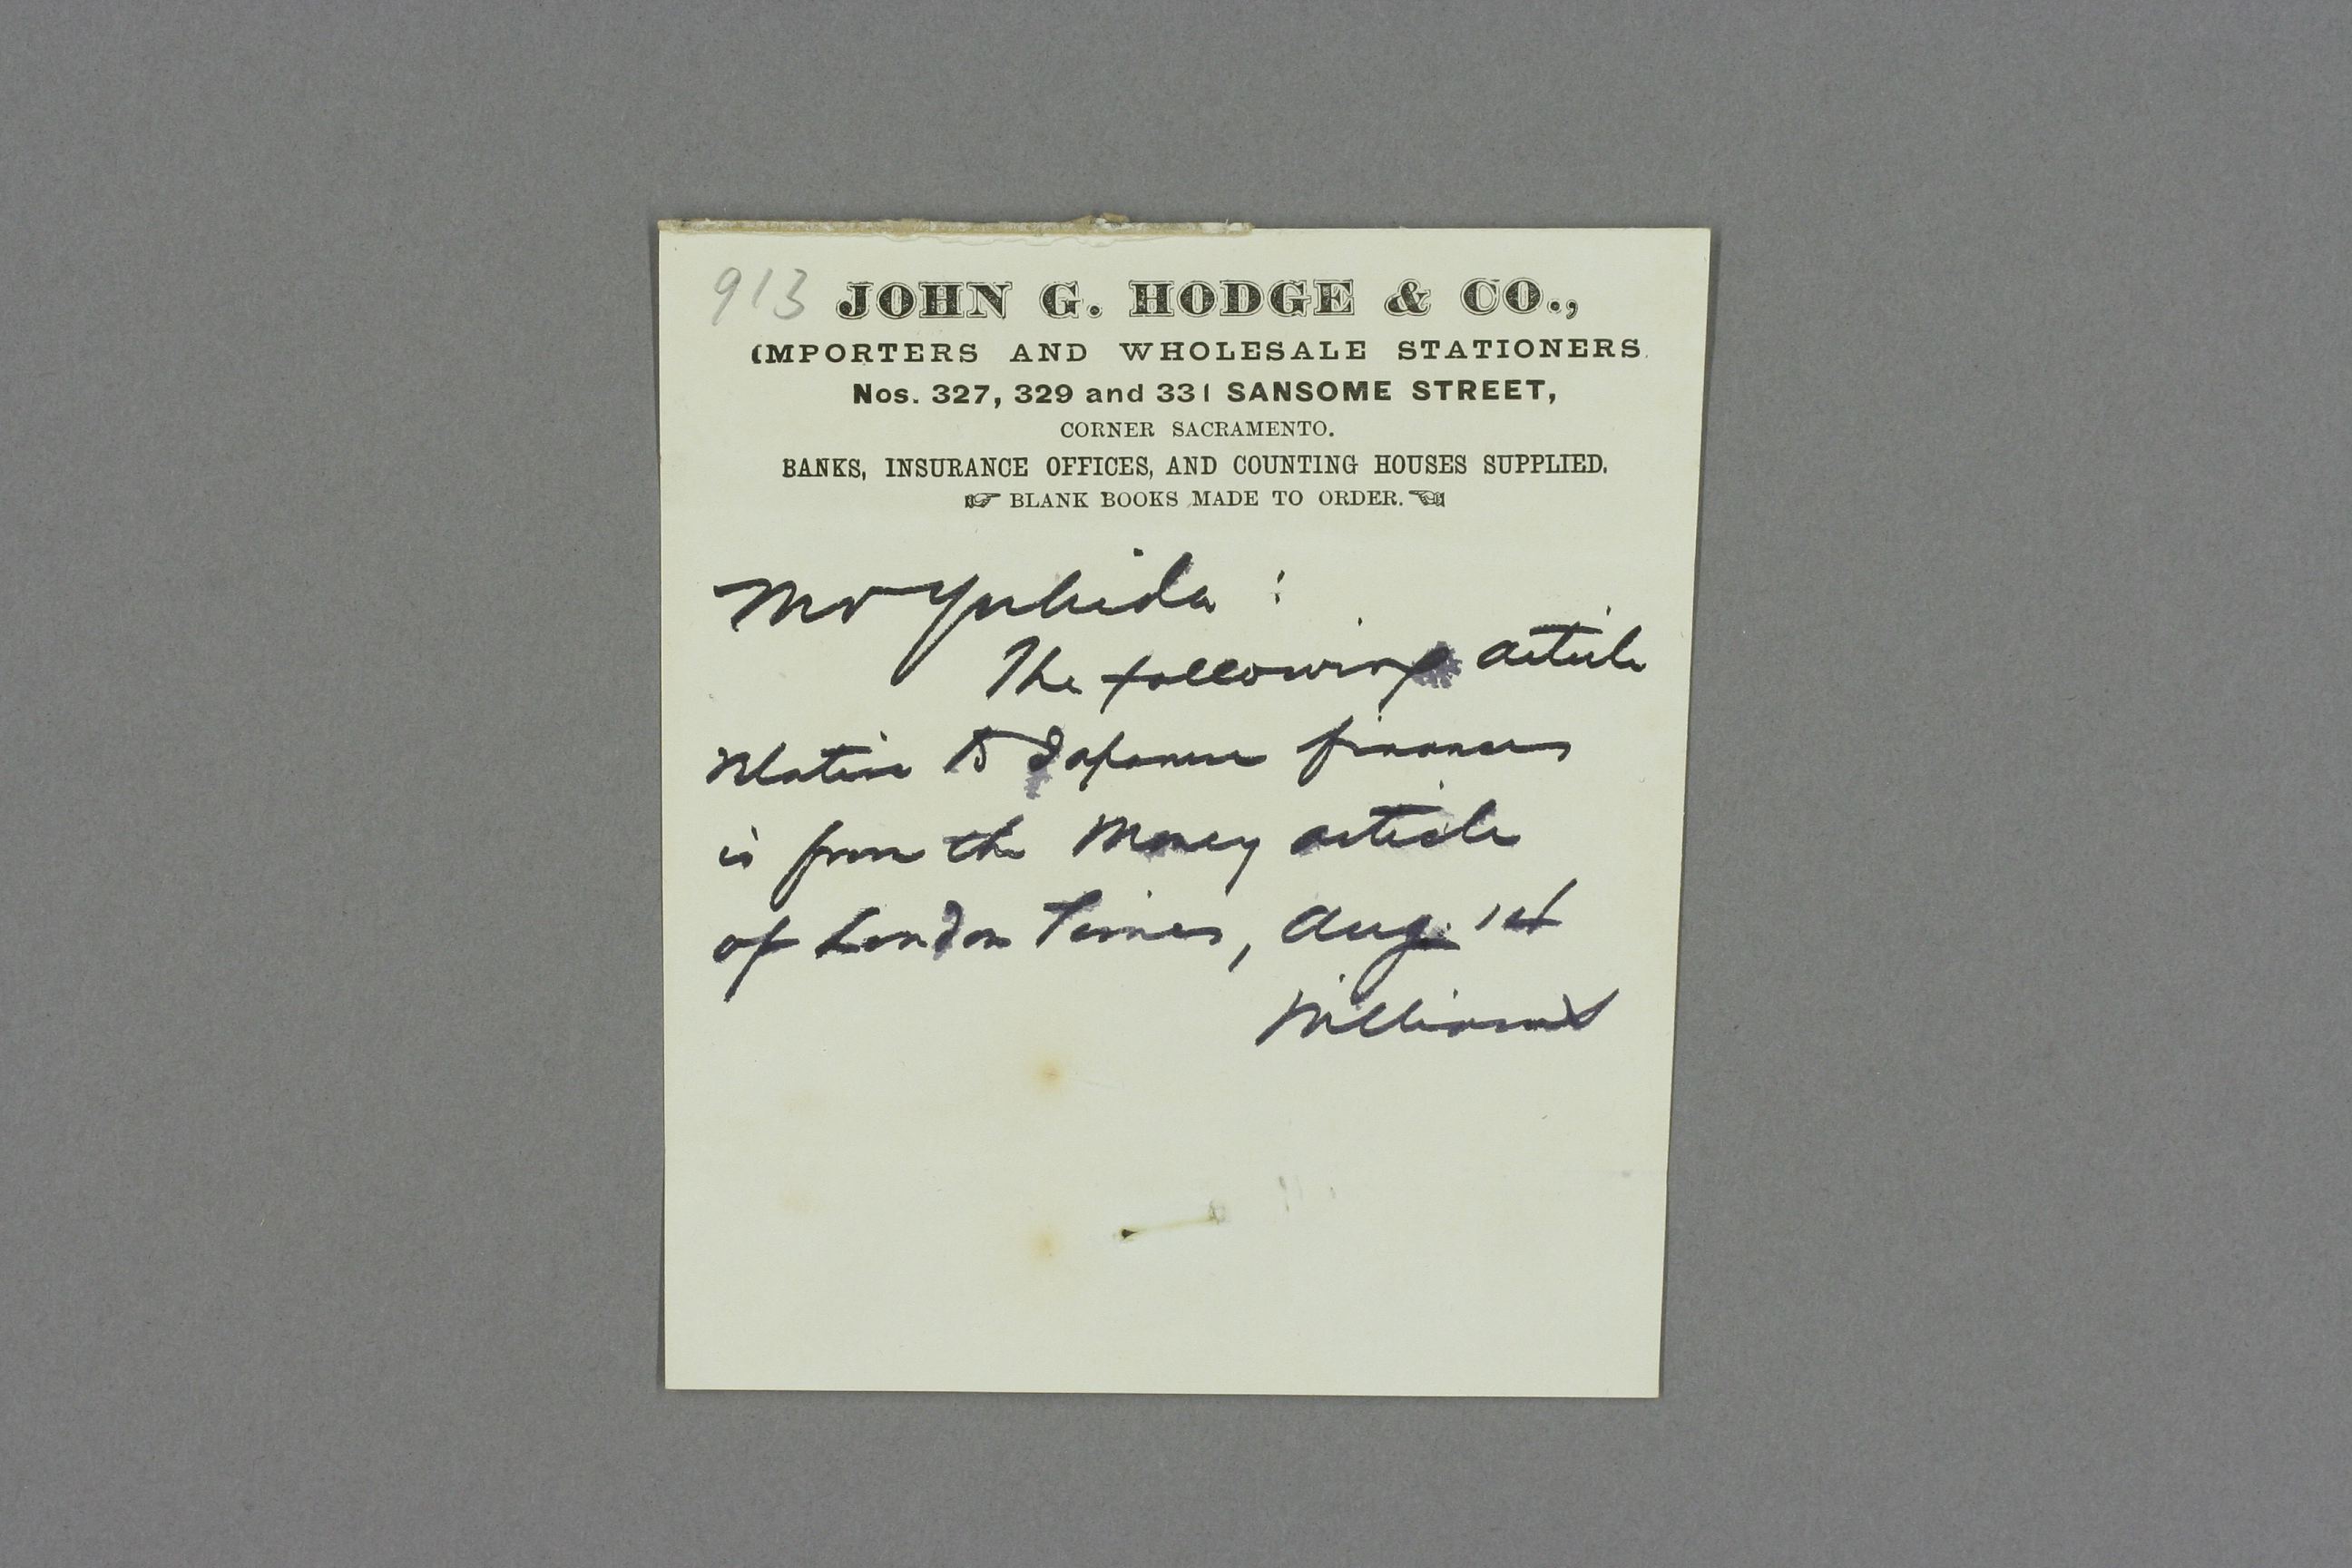 913
JOHN G. HODGE & CO.,
IMPORTERS AND WHOLESALE STATIONERS.
Nos. 327, 329 and 331 SANSOME STREET,
CORNER SACRAMENTO.
BANKS, INSURANCE OFFICES, AND COUNTING HOUSES SUPPLIED.
☞ BLANK BOOKS MADE TO ORDER. ☜
Mr Yoshida :
The following article
relative to Japanese finances
is from the Money article
of London Times, Aug. 1st
Williams